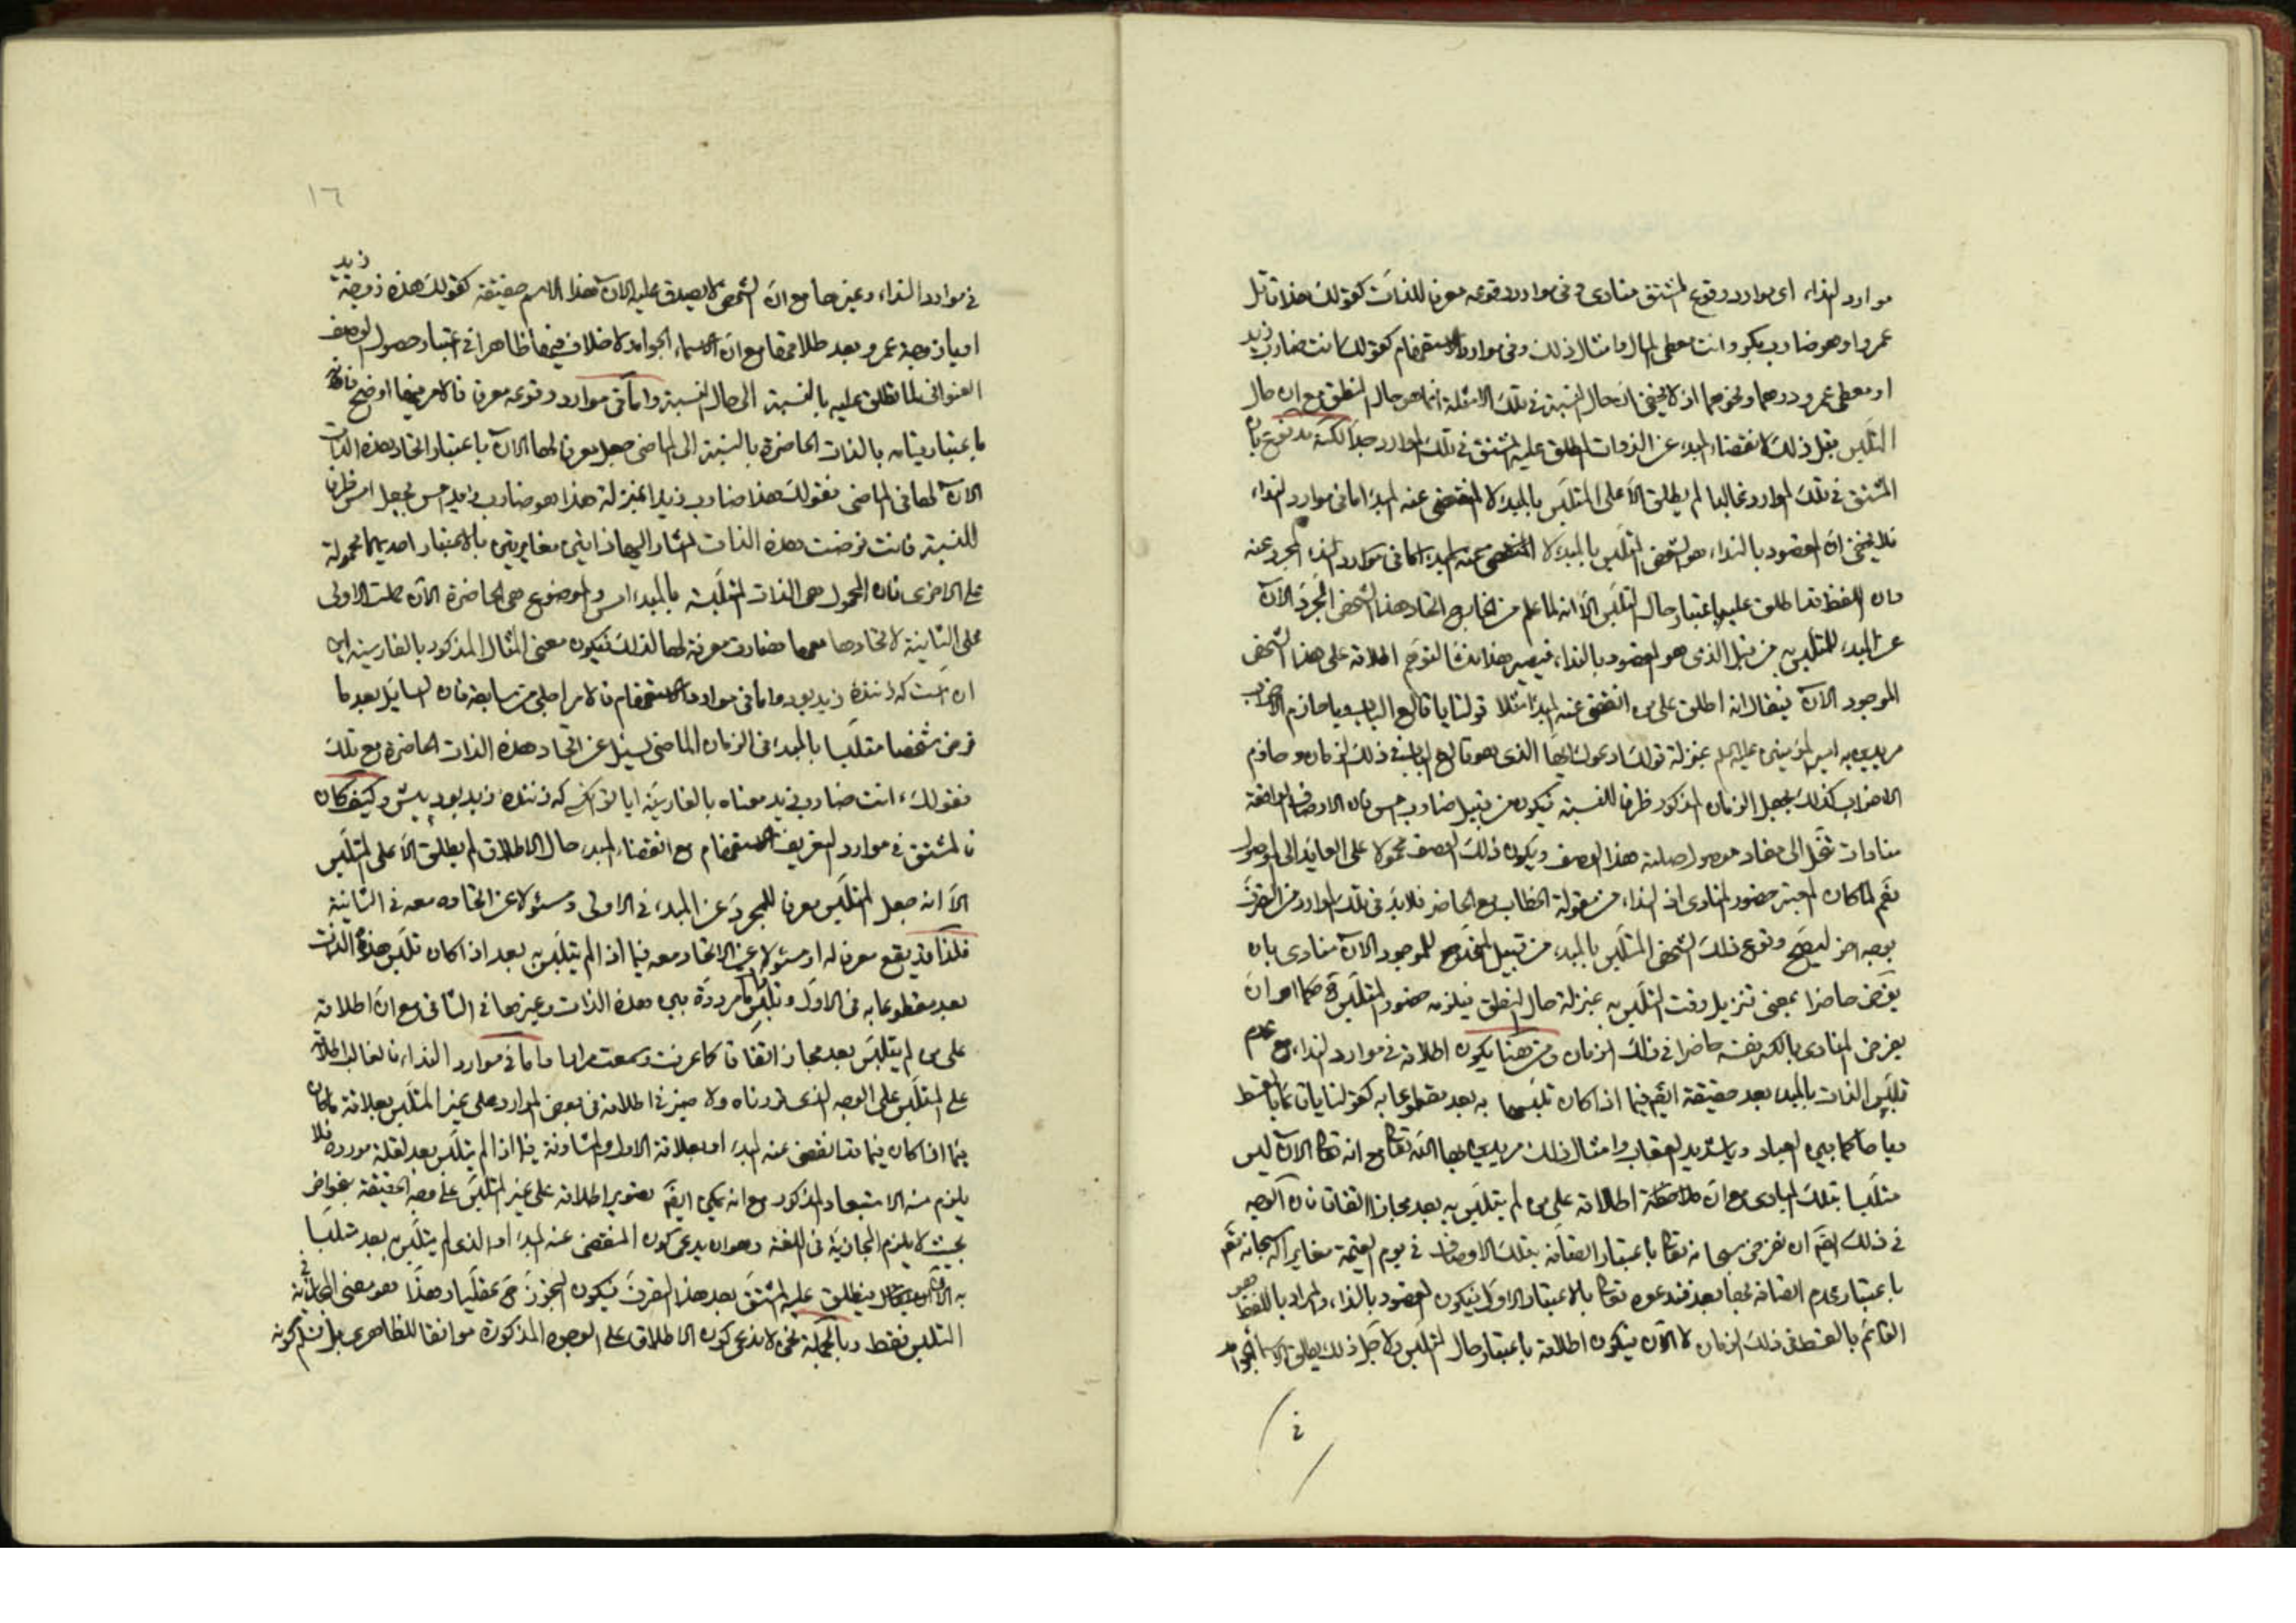 موارد النداء اى موارد وقوع المشتق منادى وفى موارد وقوعه معرفا للذات كقولك هذا قاتل
عمرو او هو ضارب بكر وانت معطى المال وامثال ذلك وفى موارد الاستفهام كقولك ءانت ضارب زيد
او معطى عمرو درهما ونحوهما اذ لا يخفى ان حال النسبة فى تلك الامثلة انما هو حال النطق مع ان حال
التلبس قبل ذلك لانقضاء المبدء عن الذوات المطلق عليها المشتق فى تلك الموارد جدا لكنه مدفوع بان
المشتق فى تلك الموارد غالبا لم يطلق الا على المتلبس بالمبدء لا المنقضى عنه المبدء اما فى موارد النداء
فلا يخفى ان المقصود بالنداء هو الشخص المتلبس بالمبدء لا المنقضى عنه المبدء اما فى موارد النداء المجرد عنه
وان اللفظ قد اطلق عليه باعتبار حال التلبس الا انه لما علم من الخارج اتحاد هذا الشخص المجرد الآن
عن المبدء للمتلبس به من قبل الذى هو المقصود بالنداء فيصير هذا منشأ لتوهم اطلاقه على هذا الشخص
الموجود الآن فيقال انه اطلق على من انقضى عنه المبدء مثلا قولنا يا قالع الباب ويا هازم الاحزاب
مريدين به امير المؤمنين عليه السلم بمنزلة قولك ادعوك ايها الذى هو قالع الباب فى ذلك الزمان وهازم
الاحزاب كذلك بجعل الزمان المذكور ظرفا للنسبة فيكون من قبيل ضارب امس فان الاوصاف الواقعة
منادات تنحل الى مفاد موصول صلته هذا الوصف ويكون ذلك الوصف محمولا على العائد الى الموصول
نعم لما كان المعتبر حضور المنادى اذ النداء من مقولة الخطاب مع الحاضر فلا بد فى تلك الموارد من التصرف
بوجه آخر ليصح وقوع ذلك الشخص المتلبس بالمبدء من قبيل المتحد مع للموجود الآن منادى بان
يفرض حاضرا بمعنى تنزيل وقت التلبس به بمنزلة حال النطق فيلزمه حضور المتلبس حكما او ان
يفرض المنادى بالكسر نفسه حاضرا فى ذلك الزمان ومن هنا يكون اطلاقه فى موارد النداء مع عدم
تلبس الذات بالمبدء بعد حقيقة ايضا فيما اذا كان تلبسها به بعد مقطوعا به كقولنا يا قائما بالقسط
ويا حاكما بين العباد ويا شديد العقاب وامثال ذلك مريدين بها الله تعالى مع انه تعالى الآن ليس
متلبسا بتلك المبادى مع ان اطلاقه على من لم يتلبس به بعد مجاز اتفاقا فان الوجه
فى ذلك ايضا ان نفرض سبحانه تعالى باعتبار اتصافه بتلك الاوصاف فى يوم القيمة مغايرا له سبحانه نعم
باعتبار عدم اتصافه بها بعد فندعوه تعالى بالاعتبار الاول فيكون المقصود بالنداء والمراد باللفظ هو
القائم بالقسط فى ذلك الزمان لا الآن فيكون اطلاقه باعتبار حال التلبس ولاجل ذلك يطلق الاسماء الجوامد
فى
١٦
فى موارد النداء وغيرها مع ان الشخص لا يصدق عليه الآن هذا الاسم حقيقة كقولك هذه زوجة زيد
او يا زوجة عمرو بعد طلاقها مع ان الاسماء الجوامد لا خلاف فيها ظاهرا فى اعتبار حصول الوصف
العنوانى لما تطلق عليه بالنسبة الى حال النسبة واما فى موارد وقوعه معرفا فالامر فيها اوضح فانه
باعتبار بالذات الحاضرة بالنسبة الى الماضى جعل معرفا لها الآن باعتبار اتحاد هذه الذات
الآن لها فى الماضى فقولك هذا ضارب زيد بمنزلة هذا هو ضارب زيد امس بجعل امس ظرفا
للنسبة فانت فرضت هذه الذات المشار اليها ذاتين متغايرتين بالاعتبار احديهما محمولة
على الاخرى فان المحمول هى الذات المتلبسة بالمبدء امس والموضوع هى الحاضرة الآن حملت الاولى
على الثانية لاتحادها معها فصارت معرفة لها لذلك فيكون معنى المثال المذكور بالفارسية اين
آن است كه زننده زيد بود واما فى موارد الاستفهام فالامر اجلى من سابقه فان السائل بعد ما
فرض شخصا متلبسا بالمبدء فى الزمان الماضى يسئل عن اتحاد هذه الذات الحاضرة مع تلك
فقولك ءانت ضارب زيد معناه بالفارسية ايا تو آن كه زننده زيد بود پيش وكيف كان
فالمشتق فى موارد التعريف والاستفهام مع انقضاء المبدء حال الاطلاق لم يطلق الا على المتلبس
الا انه جعل المتلبس معرفا للمجرد عن المبدء فى الاولى ومسئولا عن اتحاده معه فى الثانية
فلذا قد يقع معرفا له او مسئولا عن الاتحاد معه فيما اذا لم يتلبس به بعد اذا كان تلبس هذه الذات
بعد مقطوعا به فى الاول وتلبسها مرددة بين هذه الذات وغيرها فى الثانى مع ان اطلاقه
على من لم يتلبس بعد مجاز اتفاقا كما عرفت وسمعت مرارا واما فى موارد النداء فالغالب اطلاقه
على المتلبس على الوجه الذى قررناه ولا ضير فى اطلاقه فى بعض الموارد على غير المتلبس بعلاقة ما كان
فيما اذا كان فيما قد انقضى عنه المبدء او بعلاقة الاول والمشارفة فيما اذا لم يتلبس بعد لقلة مورده فلا
يلزم منه الاستبعاد المذكور مع انه يمكن ايضا تصوير اطلاقه على غير المتلبس على وجه الحقيقة
بحيث لا يلزم المجازية فى اللغة وهو ان يدعى كون المنقضى عنه المبدء او الذى لم يتلبس به بعد متلبسا
به الآن فيطلق عليه المشتق بعد هذا التصرف فيكون التجوز ح عقليا وهذا هو معنى المجازية فى
التلبس فقط وبالجملة نحن لا ندعى كون الاطلاق على الوجوه المذكورة موافقا للظاهر بل نسلم كونه